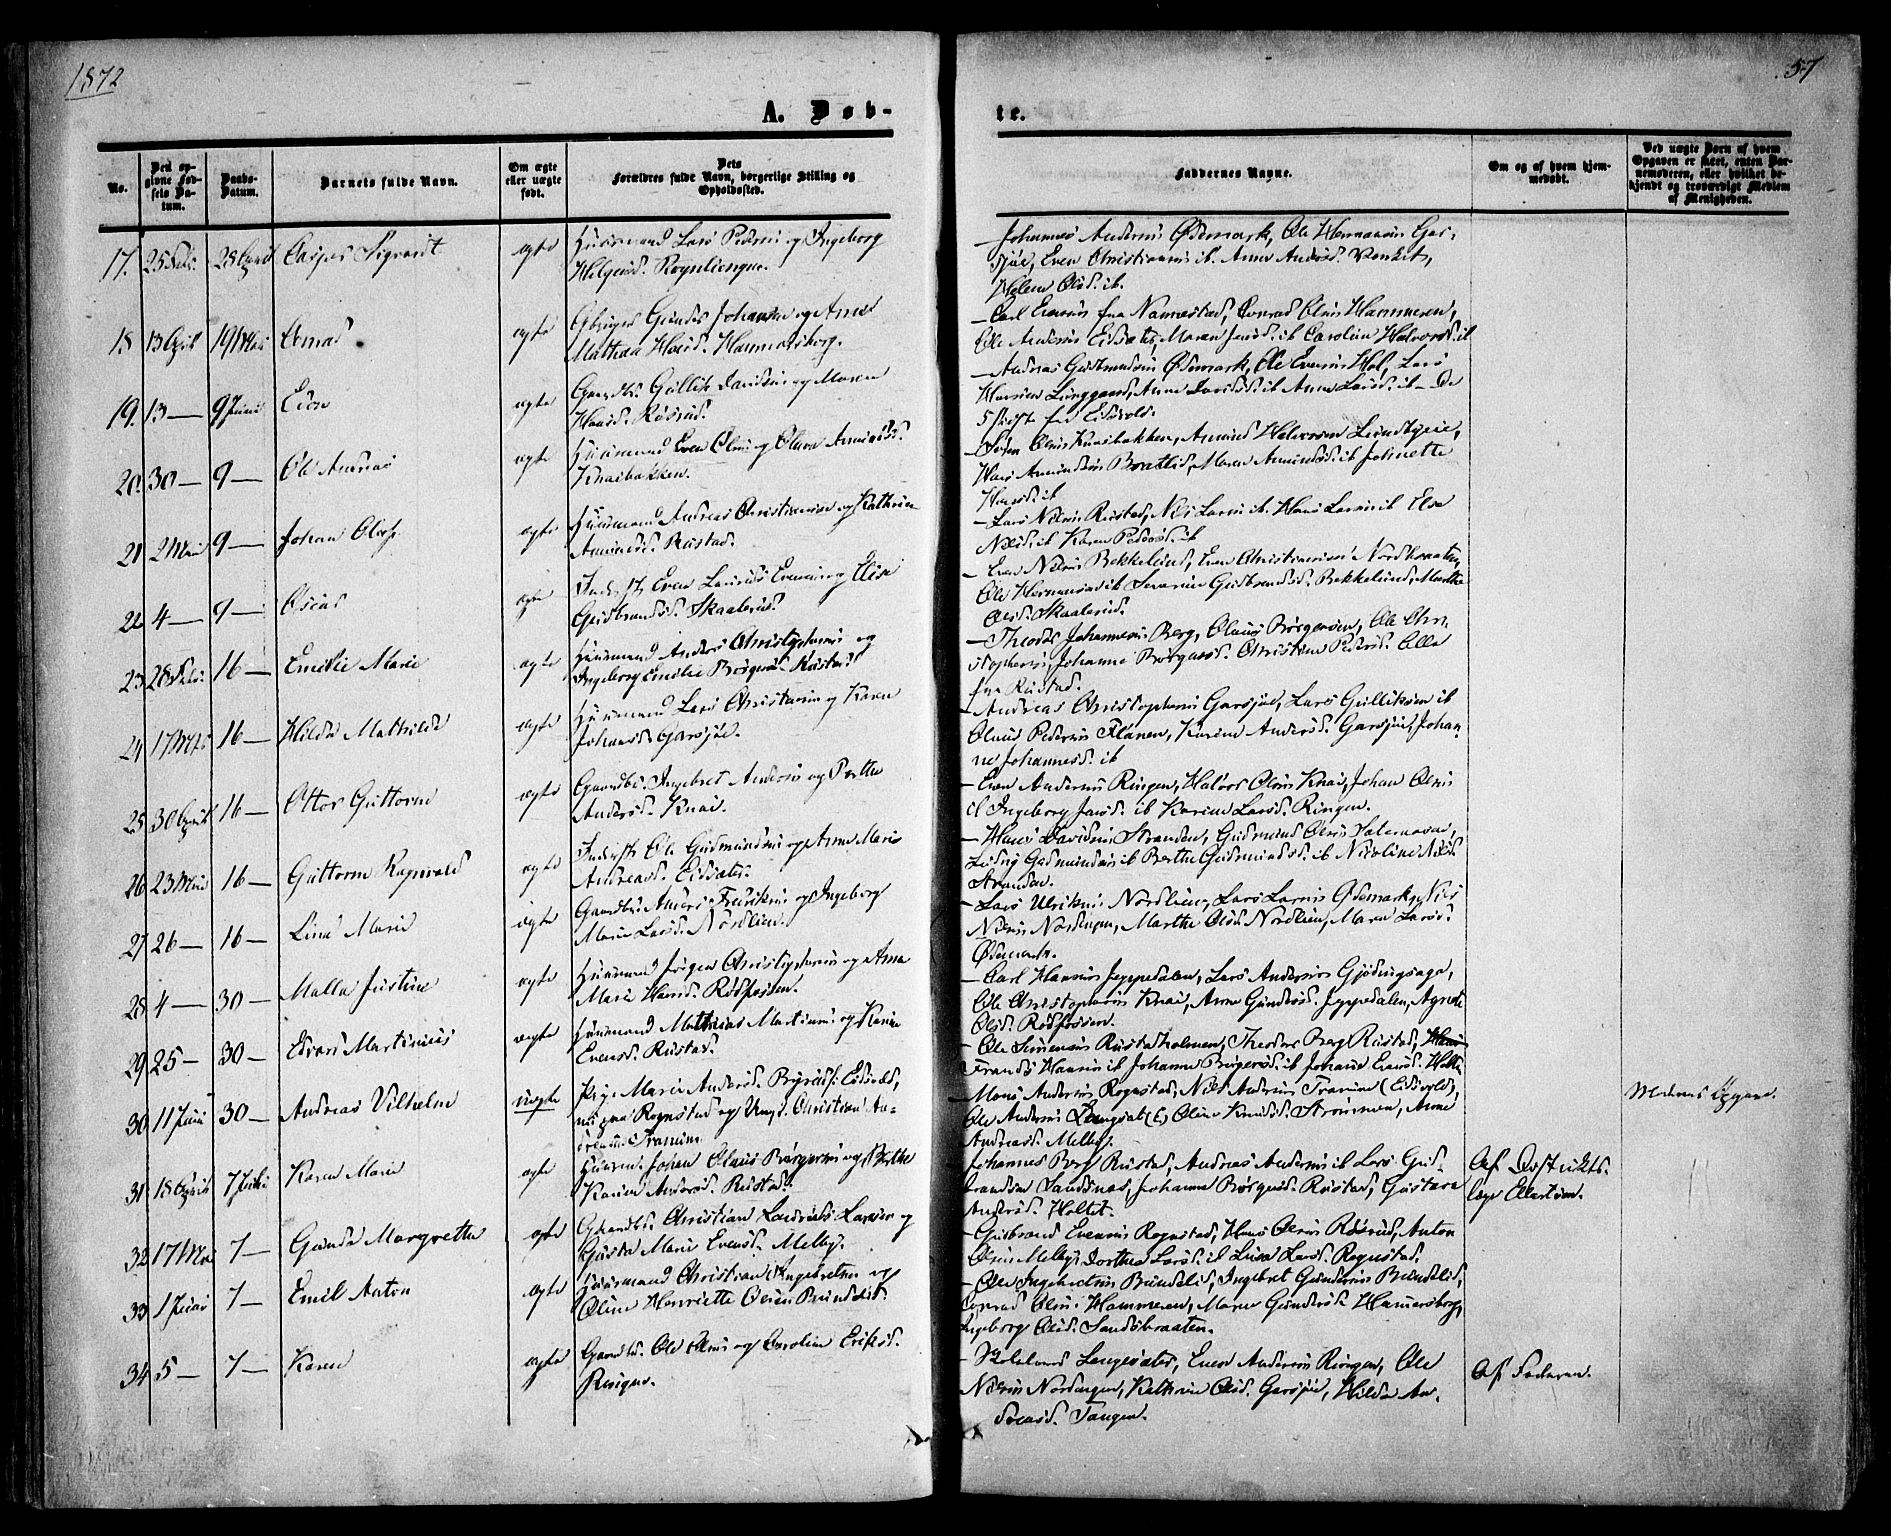 1872
57
A. Døb-
te.
No.
Den op-
givne Fød-
sels Da-
tum.
Daabs-
Datum.
Barnets fulde Navn.
Om ægte
eller uægte
født.
Dets
Forældres fulde Navn, borgerlige Stilling og
Opholdssted.
Faddernes Navne.
Om og af hvem hjem-
medøbt.
Ved uægte Born af hvem
Opgaven er skeet, enten Bar-
nemoderen, eller hvilket be-
kjendt og troværdigt Medlem
af Menigheden.
17. 25 Feb. 28 April Casper Sigvardt ægte Huusmand Lars Peders. og Ingeborg
Helgesd.
Johannes Anders. Ødemark, Ole Hermansen Gar-
sjøe, Even Christians. ib. Anne Andersd.
Helene Olsd. ib.
18 13 April 19 Mai ægte Gunder Johansen og Anne
Mathea Hansd. Hammersborg.
Carl Evensen fra Nannestad, Conrad Olsen Hammeren,
Ole Andersen Eidsæter, Maren Jensd. ib Caroline Halvorsd. ib
19. 13 — 9 Juni ægte Gaardbr. Gullik Davidsen og Maren
Hansd. Røisrud.
Andreas Gudmundsen Ødemark, Ole Evensen Hol, Lars
Hansen Anne Larsd. ib Anne Larsd. ib — De
5 fra Eidsvold.
20. 30 — 9 — Ole Andreas ægte Huusmand Even Olsen og Olava Amundsd.
Knaibakken.
Olsen Knaibakken, Amund Halvorsen
Hans Amundsen Maren Amundsd. ib Johnette
Hansd. ib
21 2 Mai 9 — Johan Oluf ægte Huusmand Andreas Christiansen og Kathrine
Amundsd. Rustad.
Lars Nilsen Rustad, Nils Larsen ib. Hans Larsen ib Else
Nilsd. ib Karen Pedersd. ib
22 4 — 9 — Oscar ægte Inderst Even Laurids Evensen og Elise
Gudbrandsd. Skaalerud.
Even Nilsen Bekkelund, Even Christiansen Nordbraaten,
Ole Hermansen ib Severine Gudbrandsd. Bekkelund, Marthe
Olsd. Skaalerud.
23 28 Febr. 16 — Emilie Marie ægte Huusmand Anders Christophersen og
Ingeborg Emilie Børgersd. Rustad.
Theodor Johannesen Berg, Olaus Børgersen, Ole Chri-
stophersen, Johanne Børgersd. Christine Pedersd. Alle
fra Rustad.
24 17 16 — Hilda Mathilde ægte Huusmand Lars Christiansen og Karen
Johansd. Garsjøe.
Andreas Christophersen Garsjøe, Lars Gulliksen ib
Olaus Pedersen Flånen, Karine Andersd. Garsjøe, Johan-
ne Johannesd. ib
25 30 April 16 — Otto Guttorm ægte Gaardbr. Ingebret Andersen og Berthe
Andersd. Knai.
Even Andersen Ringen, Halvor Olsen Knai, Johan Olsen
ib Ingeborg Jensd. ib Karine Larsd. Ringen.
26 23 Mai 16 — Guttorm Ragnvald ægte Inderst Ole Gudmundsen og Anne Marie
Andreasd. Eidsæter.
Hans Davidsen Stranden, Gudmund Olsen
Gudmundsen ib Berthe Gudmundsd. ib Nicoline Nilsd.
Stranden.
27 26 — 16 — Lina Marie ægte Gaardbr. Anders Fredriksen og Ingeborg
Marie Larsd. Nordlien.
Lars Ulriksen Nordlien, Lars Larsen Ødemark, Nils
Nilsen Nordengen, Marthe Olsd. Nordlien, Maren Larsd.
Ødemark.
28 4 — 30 — Malla Justine ægte Huusmand Jørgen Christophersen og Anne
Marie Hansd. Rødfossen.
Carl Hansen Jeppedalen, Lars Andersen
Ole Christophersen Knai, Anne Gundersd. Jeppedalen, Agnete
Olsd. Rødfossen.
29 25 — 30 — Edvard Martinius ægte Huusmand Mathias Martinsen og Karen
Evensd. Rustad.
Ole Simensen Rustadholmen, Theodor Berg Rustad,
Frands Hansen ib Johanne Børgersd. ib Johanne Evensd.
30 11 Juni 30 — Andreas Vilhelm uægte Pige Marie Andersd. Eidsvold,
nu paa Rognstad og Ungk. Christian An-
dersen Tranum
Mons Andersen Rognstad, Nils Andersen Tranum (Eidsvold),
Ole Andersen (E) Oline Knudsd. Strømmen, Anne
Andreasd. Melby.
Moderens Opgave.
31 18 April 7 Juli Karen Marie ægte Huusm. Johan Olaus Børgersen og Berthe
Karine Andersd. Rustad.
Johannes Berg Rustad, Andreas Andersen ib Lars Gud-
brandsen Sandsnæs, Johanne Børgersd. Rustad, Gustava
Andersd. Holtet.
Af Distrikts-
læge
32 17 Mai 7 — Gunda Margrethe ægte Gaardbr. Christian Laurids Larsen og
Gusta Marie Evensd. Melby.
Gulbrand Evensen Rognstad, Hans Olsen Røisrud, Anton
Olsen Melby, Dorthea Larsd. ib Lisa Larsd. Rognstad.
33 1 Juni 7 — Emil Anton ægte Huusmand Christian Ingebretsen og
Oline Henriette Olsen Bundelid.
Ole Ingebretsen Bundelid, Ingebret Gundersen Bundelid,
Conrad Olsen Hammeren, Maren Gundersd. Hammersborg,
Ingeborg Olsd. Sandsbraaten.
34 5 — 7 — Karen ægte Gaardbr. Ole Olsen og Caroline Eriksd.
Ringen.
Langesæter, Even Andersen Ringen, Ole
Nilsen Nordengen, Kathrine Olsd. Garsjøe, Hilda An-
dreasd. Tangen.
Af Faderen.